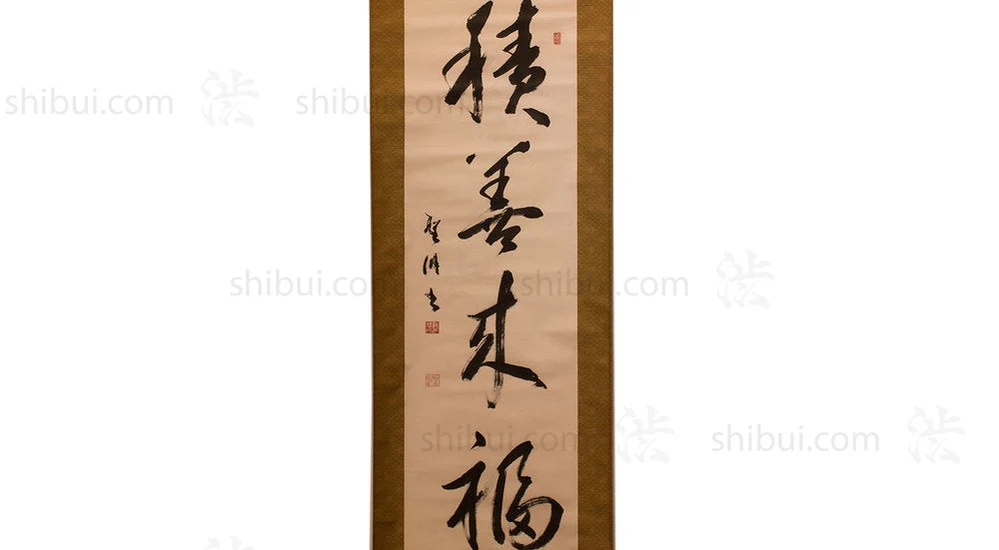 積善来福
shibui.com 渋 shibui.com
shibui.com shibui.com 渋
shibui.com 渋 shibui.com 渋